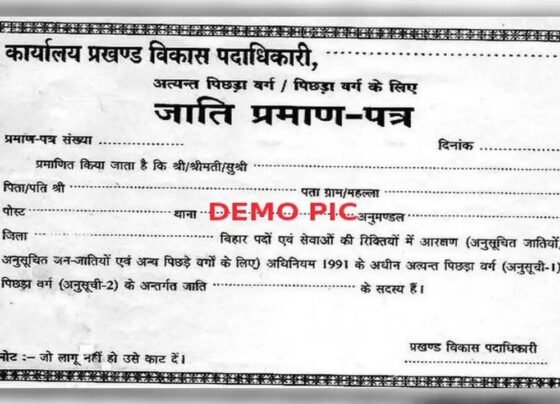 कार्यालय प्रखण्ड विकास पदाधिकारी, ........................
अत्यन्त पिछड़ा वर्ग / पिछड़ा वर्ग के लिए
जाति प्रमाण-पत्र
प्रमाण-पत्र संख्या ........................ दिनांक ........................
प्रमाणित किया जाता है कि श्री/श्रीमती/सुश्री ........................
पिता/पति श्री ........................ पता ग्राम/महल्ला ........................
पोस्ट ........................ थाना ........................ अनुमण्डल ........................
DEMO PIC
जिला ........................ बिहार पदों एवं सेवाओं की रिक्तियों में आरक्षण (अनुसूचित जातियों,
अनुसूचित जन-जातियों एवं अन्य पिछड़े वर्गो के लिए) अधिनियम 1991 के अधीन अत्यन्त पिछड़ा वर्ग (अनुसूची-1)
पिछड़ा वर्ग (अनुसूची-2) के अन्तर्गत जाति ........................ के सदस्य हैं।
प्रखण्ड विकास पदाधिकारी
नोट :– जो लागू नहीं हो उसे काट दें।